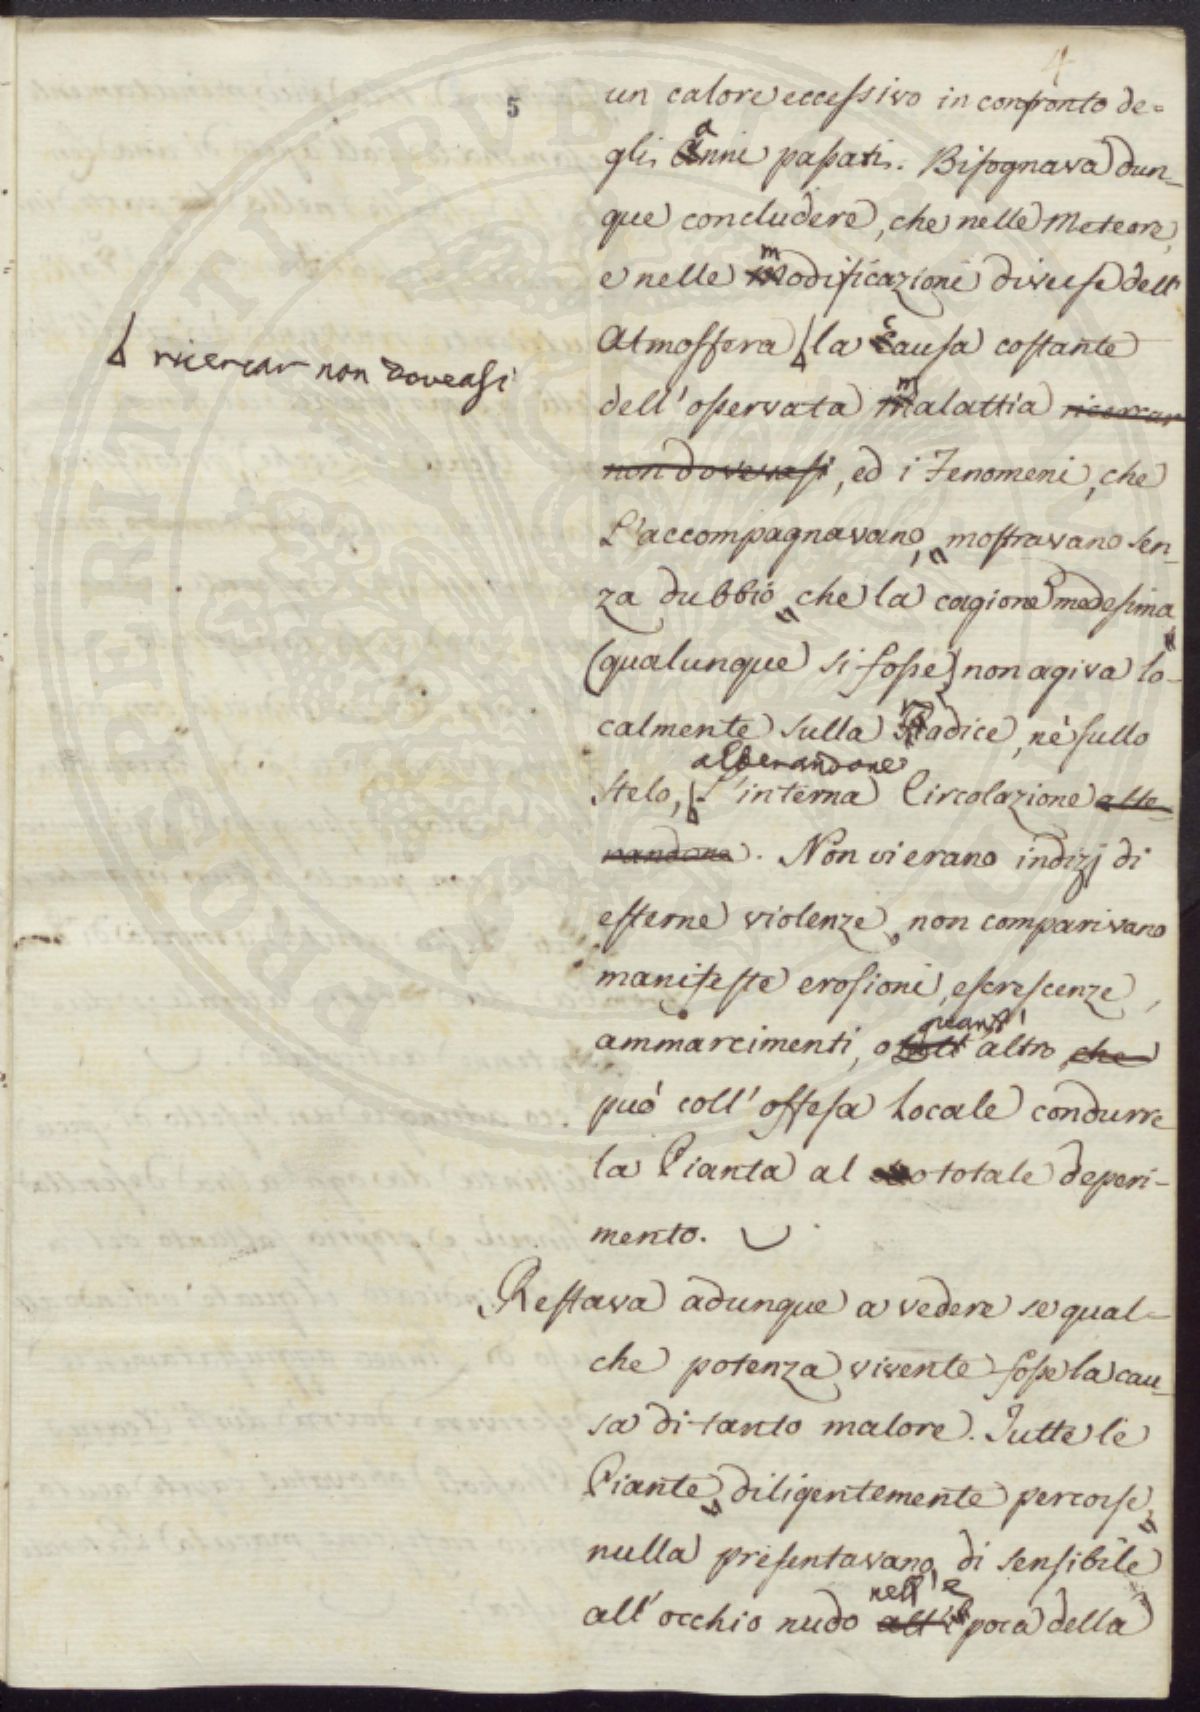 4
5
un calore eccessivo in confronto de=
gli anni passati. Bisognava dun-
que concludere, che nelle Meteore,
e nelle modificazioni diverse dell'
Atmosfera la causa costante
ricercar non doveasi
dell'osservata malattia ricercar
non dovevasi, ed i Fenomeni, che
l'accompagnavano, mostravano sen-
za dubbio che la cagione medesima
(qualunque si fosse) non agiva lo-
calmente sulla radice, nè sullo
alterandone
stelo, l'interna Circolazione alte-
randone. Non vi erano indizj di
esterne violenze, non comparivano
manifeste erosioni, escrescenze,
ammarcimenti, o quant' altro che
può coll'offesa locale condurre
la Pianta al totale deperi-
mento.
Restava adunque a vedere se qual-
che potenza vivente fosse la cau-
sa di tanto malore. Tutte le
Piante diligentemente percorse,
nulla presentavano di sensibile
nell' e
all'occhio nudo all'epoca della
PROPERINTI PUBLICE